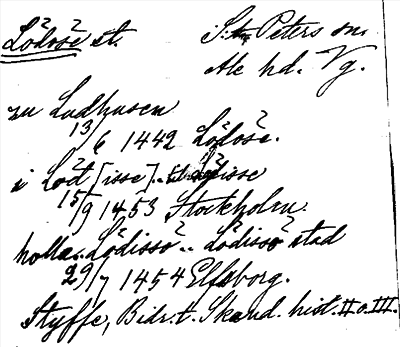 Lödöse st.
S:t Peters sn.
Ale hd. Vg.
zu Ludhusen
13/6 1442 Lödöse.
i Lod[isse] Lödisse
15/9 1453 Stockholm.
holla Lödisso .. Lödisso stad
29/7 1454 Elfsborg.
Styffe, Bidr. t. Skand. hist. II o. III.